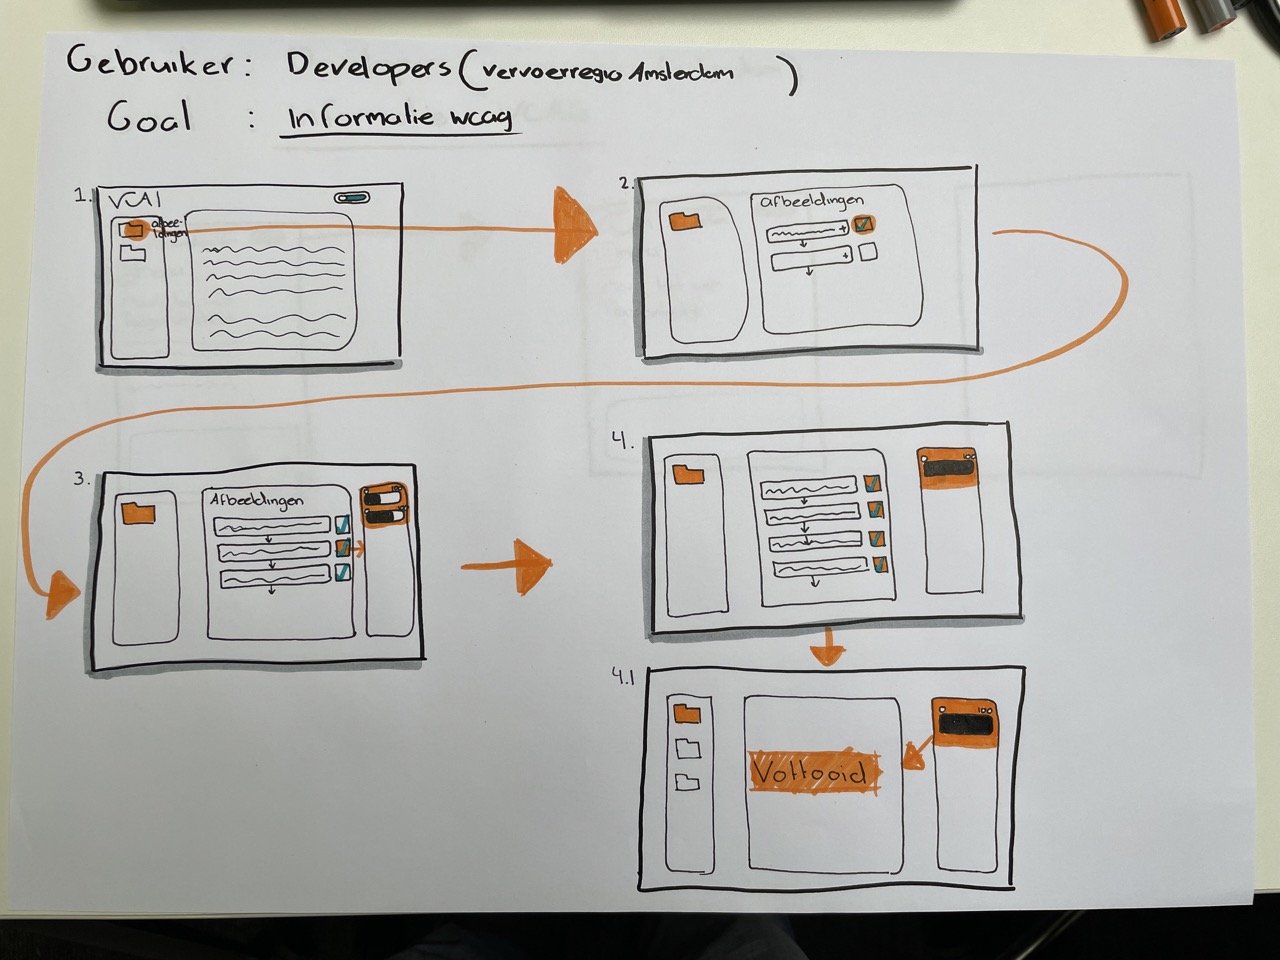 Gebruiker: Developers (vervoerregio Amsterdam)
Goal : Informatie wcag
1.
VCAI
afbee-
ldingen
2.
afbeeldingen
3.
Afbeeldingen
4.
4.1
100
Voltooid